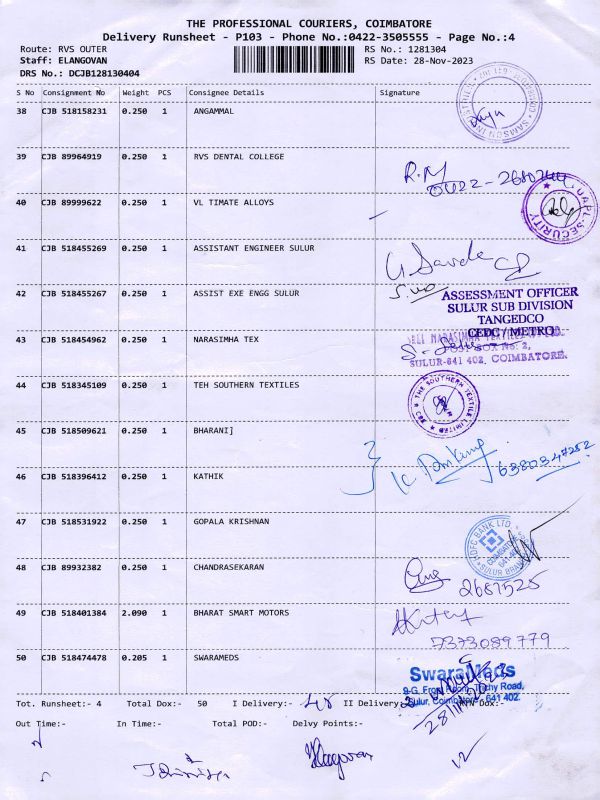 THE PROFESSIONAL COURIERS, COIMBATORE
Delivery Runsheet - P103 - Phone No.:0422-3505555 - Page No.:4
Route: RVS OUTER RS No.: 1281304
Staff: ELANGOVAN RS Date: 28-Nov-2023
DRS No.: DCJB128130404
S No Consignment No Weight PCS Consignee Details Signature
38 CJB 518158231 0.250 1 ANGAMMAL
39 CJB 89964919 0.250 1 RVS DENTAL COLLEGE
R.M
0422-2680744
40 CJB 89999622 0.250 1 VL TIMATE ALLOYS
SECURITY
41 CJB 518455269 0.250 1 ASSISTANT ENGINEER SULUR
42 CJB 518455267 0.250 1 ASSIST EXE ENGG SULUR
ASSESSMENT OFFICER
SULUR SUB DIVISION
TANGEDCO
CEDC / METRO
43 CJB 518454962 0.250 1 NARASIMHA TEX
SULUR-641 402. COIMBATORE.
44 CJB 518345109 0.250 1 TEH SOUTHERN TEXTILES
THE SOUTHERN TEXTILE LIMITED
45 CJB 518509621 0.250 1 BHARANI]
46 CJB 518396412 0.250 1 KATHIK
6380347252
47 CJB 518531922 0.250 1 GOPALA KRISHNAN
IDFC BANK LTD.
SULUR BRANCH
48 CJB 89932382 0.250 1 CHANDRASEKARAN
2687525
49 CJB 518401384 2.090 1 BHARAT SMART MOTORS
7373089779
50 CJB 518474478 0.205 1 SWARAMEDS
SwaraMeds
Trichy Road,
Sulur, Coimbatore - 641 402.
Tot. Runsheet:- 4 Total Dox:- 50 I Delivery:- II Delivery:-
Out Time:- In Time:- Total POD:- Delvy Points:-